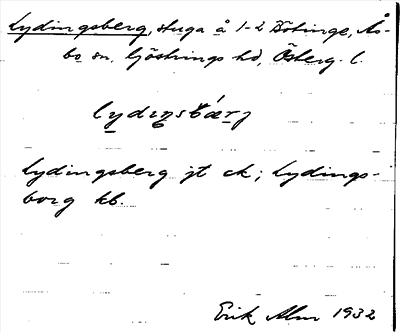 Lydingsberg, stuga å 1-2 Götinge, Ås-
bo sn. Göstrings hd, Österg. l.
lydiŋsbærj
Lydingsberg jt ek; Lydings-
borg kb.
Erik Alm 1932